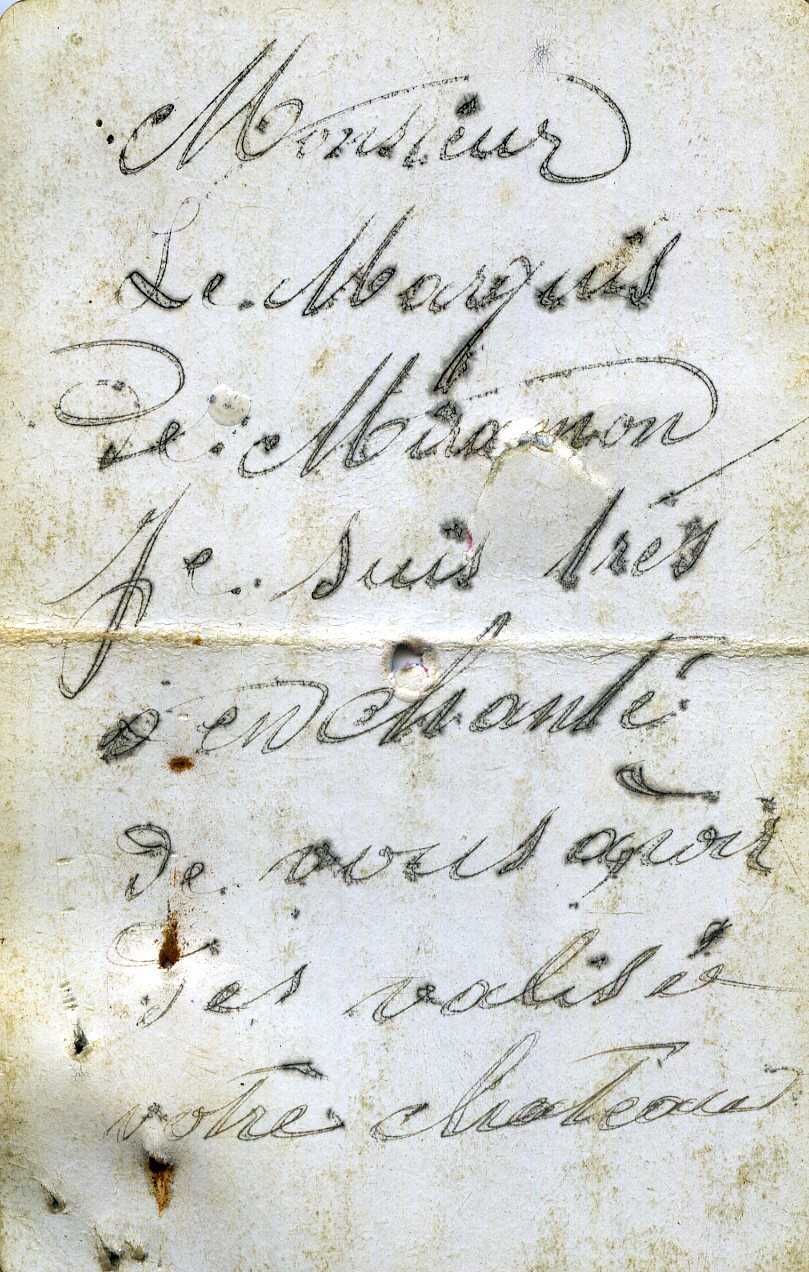 Monsieur
Le Marquis
de Miramon
Je suis très
enchanté
de vous avoir
des valisér
votre chateaux